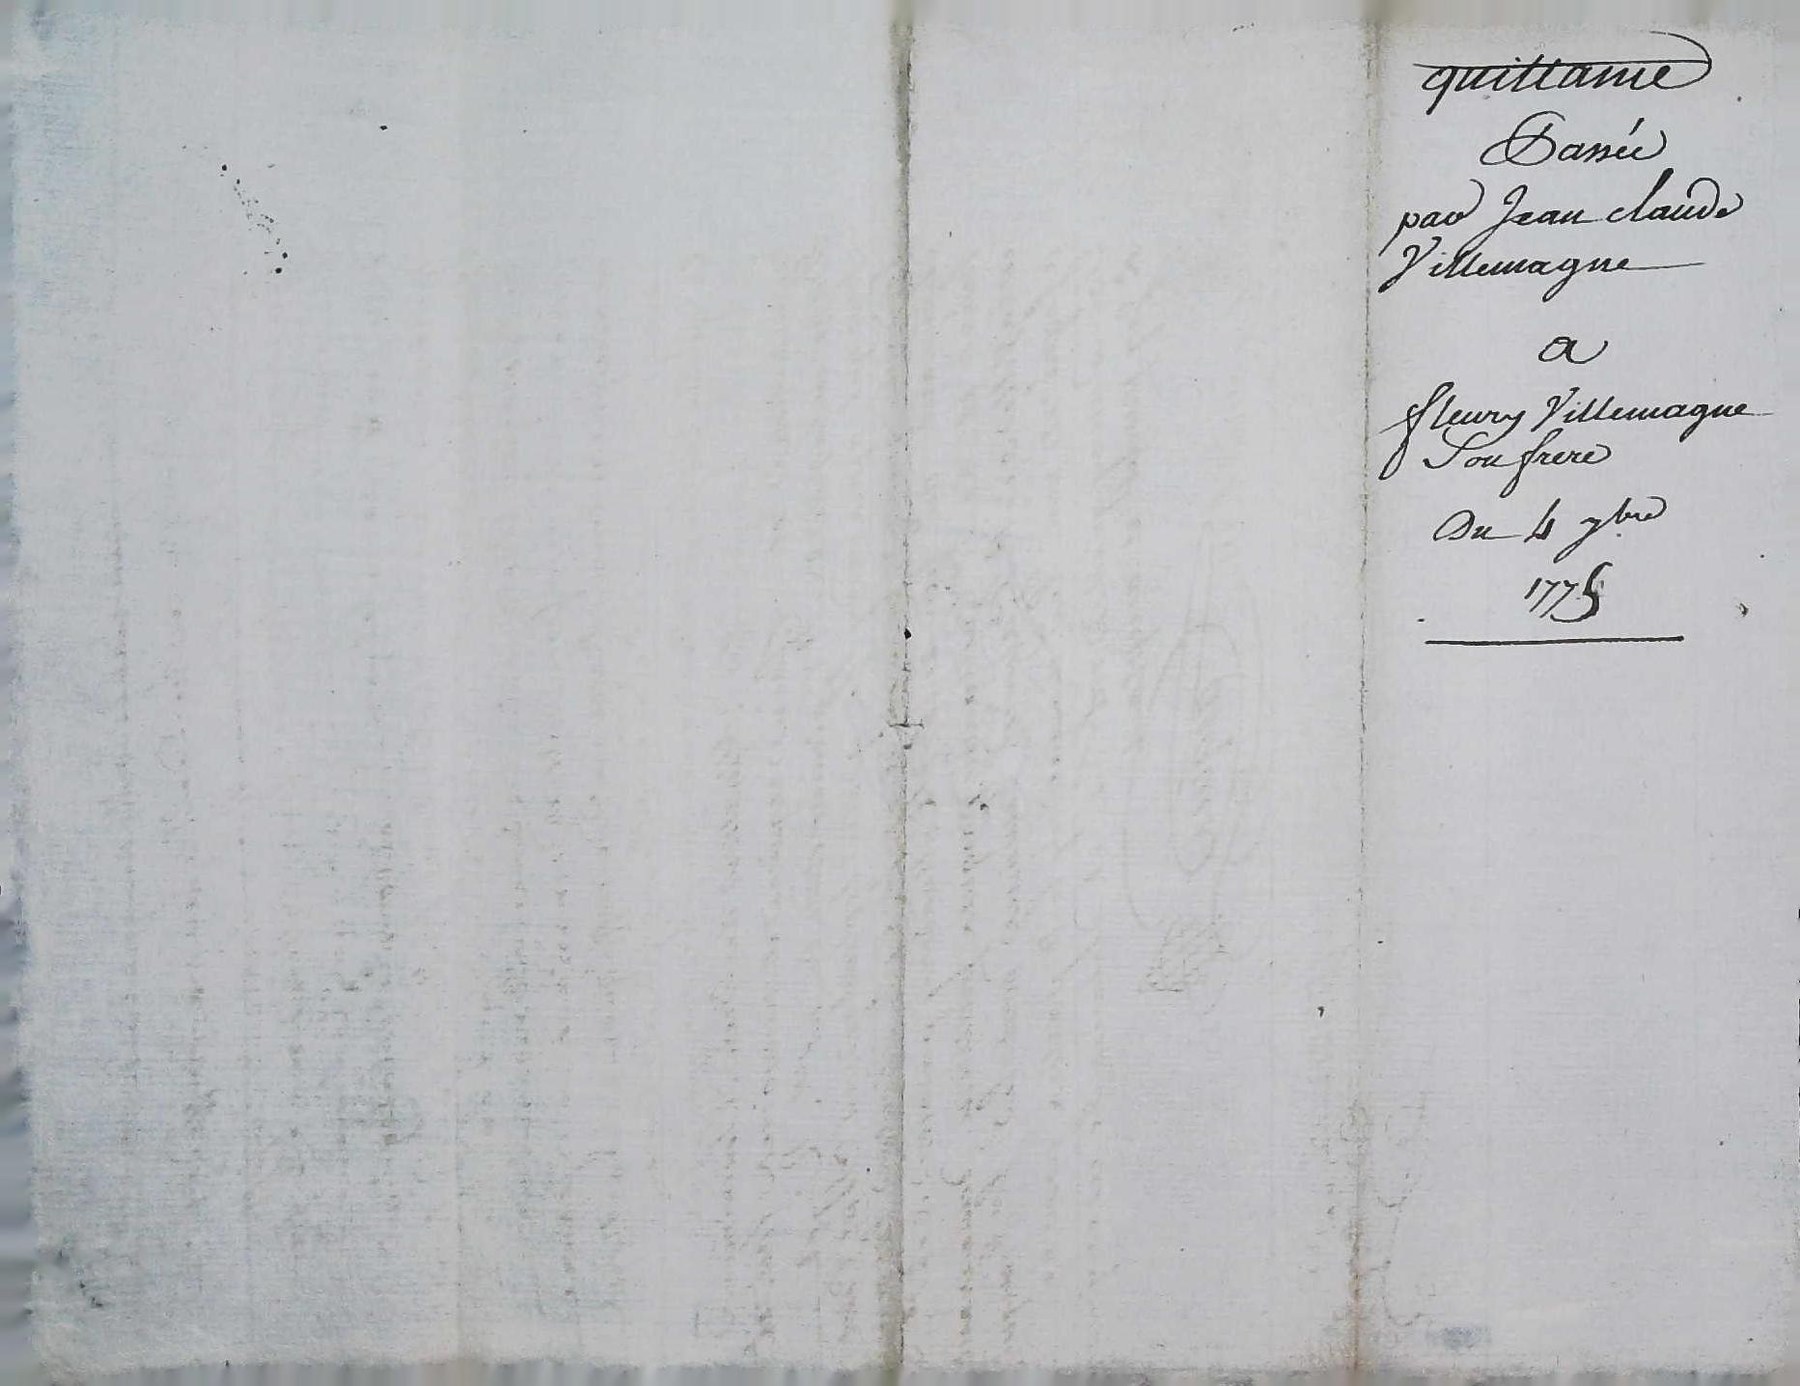 quittance
Passée
par Jean claude
Villemagne
a
fleury Villemagne
Son frere
Du 4 9bre
1775